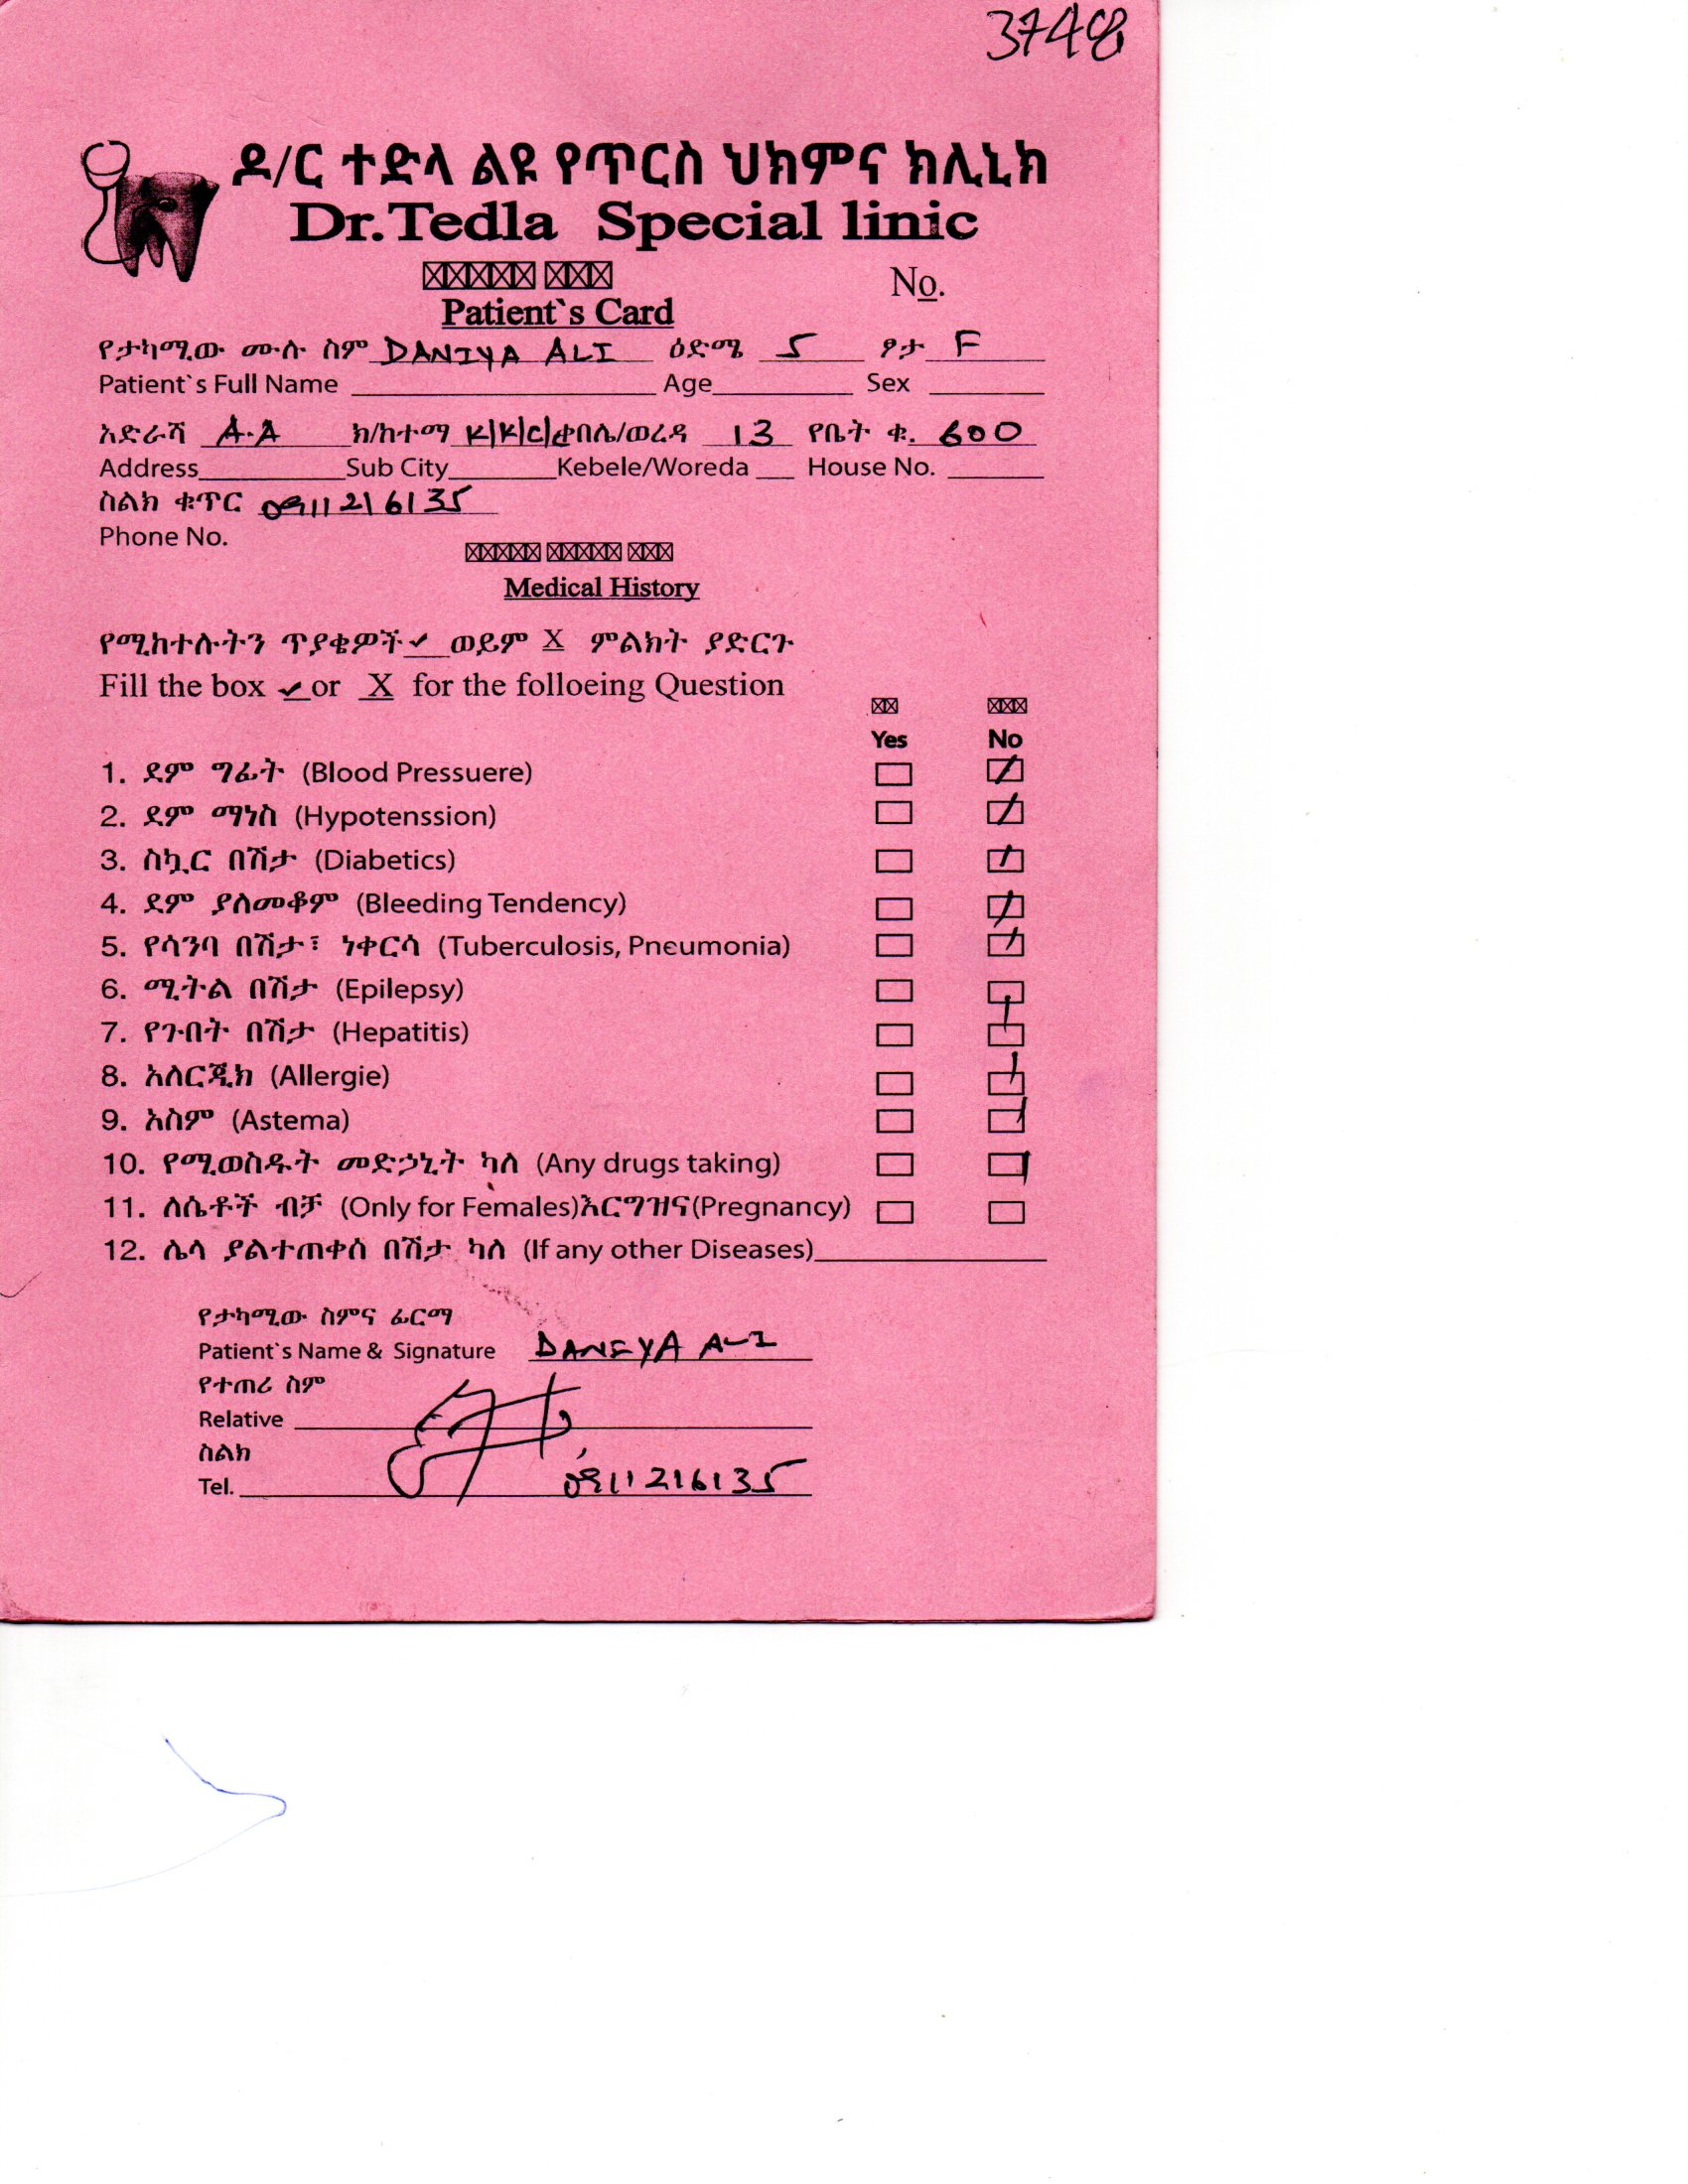 3748
ዶ/ር ተድላ ልዩ የጥርስ ህክምና ክሊኒክ
Dr.Tedla Special linic
No.
Patient`s Card
የታካሚው ሙሉ ስም DANIYA ALI ዕድሜ 5 ፆታ F
Patient`s Full Name Age Sex
አድራሻ A.A ክ/ከተማ ቀበሌ/ወረዳ 13 የቤት ቁ. 600
Address Sub City Kebele/Woreda House No.
ስልክ ቁጥር 0911216135
Phone No.
Medical History
የሚከተሉትን ጥያቄዎች ✓ ወይም X ምልክት ያድርጉ
Fill the box ✓ or X for the folloeing Question
Yes No
1. ደም ግፊት (Blood Pressuere)
2. ደም ማነስ (Hypotenssion)
3. ስኳር በሽታ (Diabetics)
4. ደም ያለመቆም (Bleeding Tendency)
5. የሳንባ በሽታ፣ ነቀርሳ (Tuberculosis, Pneumonia)
6. ሚትል በሽታ (Epilepsy)
7. የጉበት በሽታ (Hepatitis)
8. አለርጂክ (Allergie)
9. አስም (Astema)
10. የሚወስዱት መድኃኒት ካለ (Any drugs taking)
11. ለሴቶች ብቻ (Only for Females)እርግዝና(Pregnancy)
12. ሌላ ያልተጠቀሰ በሽታ ካለ (If any other Diseases)
የታካሚው ስምና ፊርማ
Patient`s Name & Signature DANIYA ALI
የተጠሪ ስም
Relative
ስልክ
Tel. 0911216135